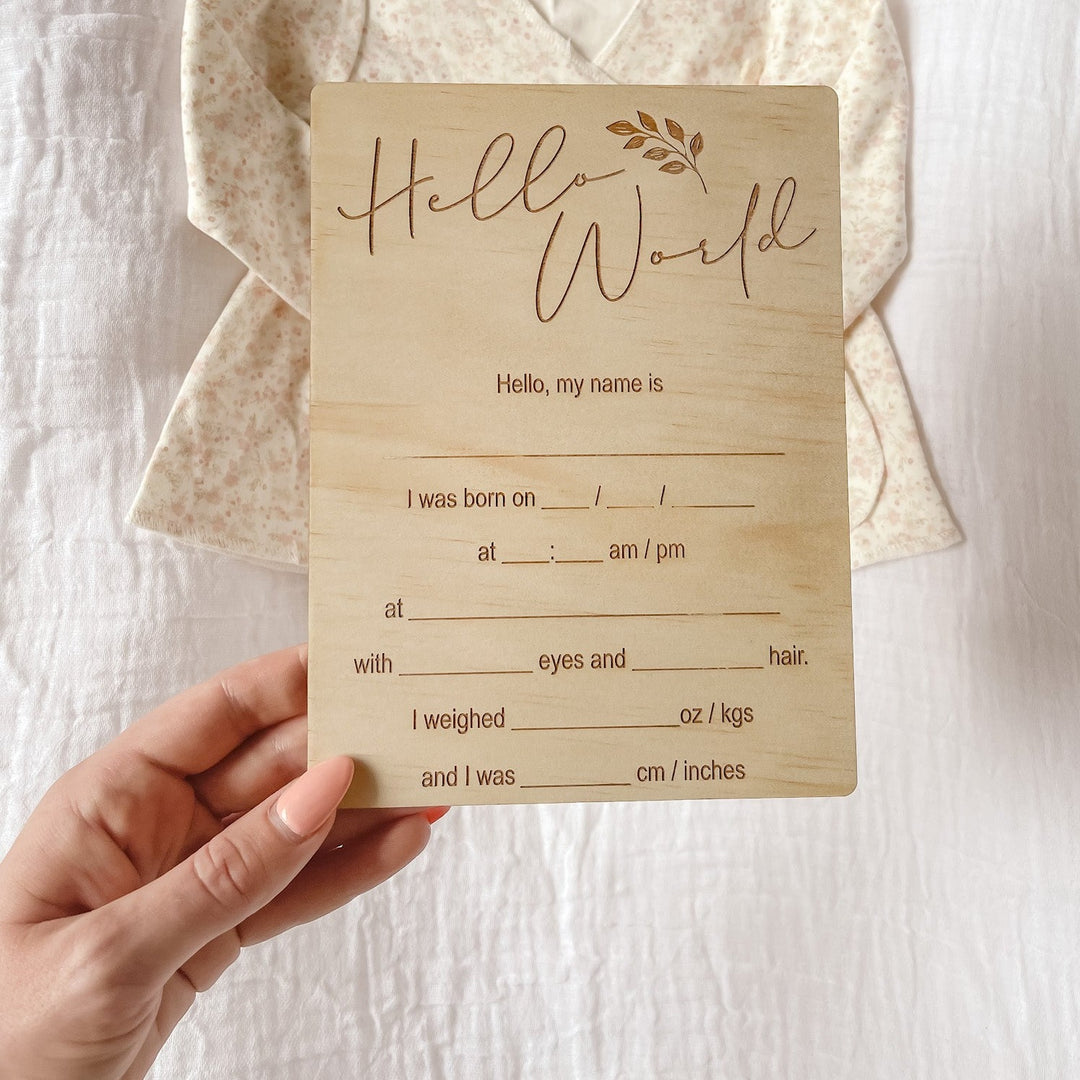 Hello
World
Hello, my name is
____________________
I was born on ____ / ____ / _______
at ____:____ am / pm
at ____________________
with ___________ eyes and ___________ hair.
I weighed ______________oz / kgs
and I was _________ cm / inches